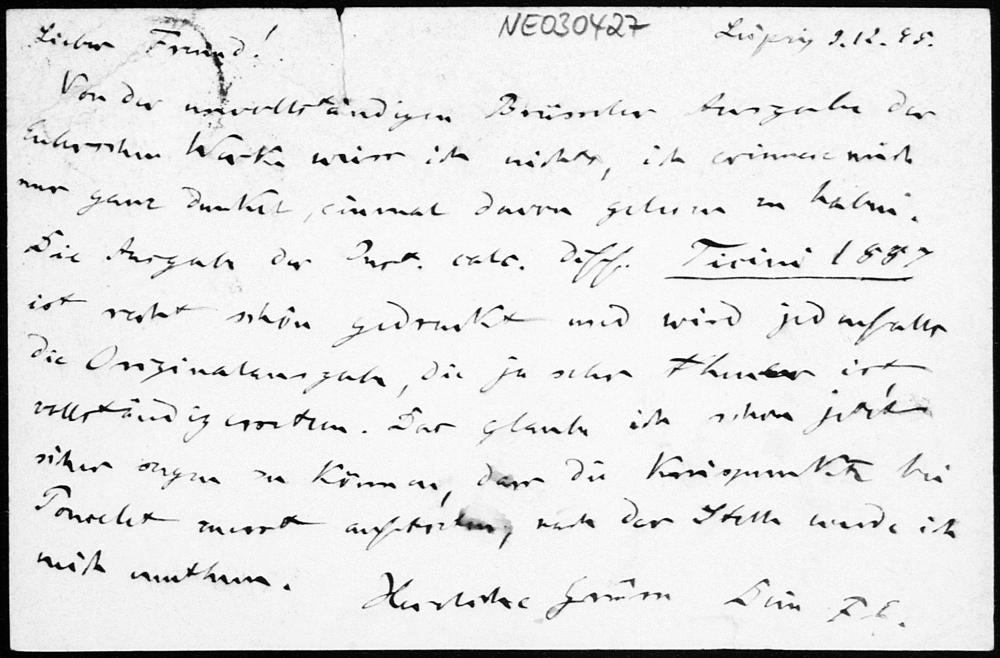 NE030427
Lieber Freund! Leipzig 9.12.95.
Von der unvollständigen Brüsseler Ausgabe der
Eulerschen Werke weiss ich nichts, ich erinnere mich
nur ganz dunkel, einmal davon gelesen zu haben.
Die Ausgabe der Inst. calc. diff. Ticini 1787
ist recht schön gedruckt und wird jedenfalls
die Originalausgabe, die ja sehr theuer ist
vollständig ersetzen. Das glaube ich schon jetzt
sicher sagen zu können, dass die Kreispunkte bei
Poncelet zuerst auftreten, nach der Stelle werde ich
mich umthun.
Herzliche Grüsse Dein F. E.